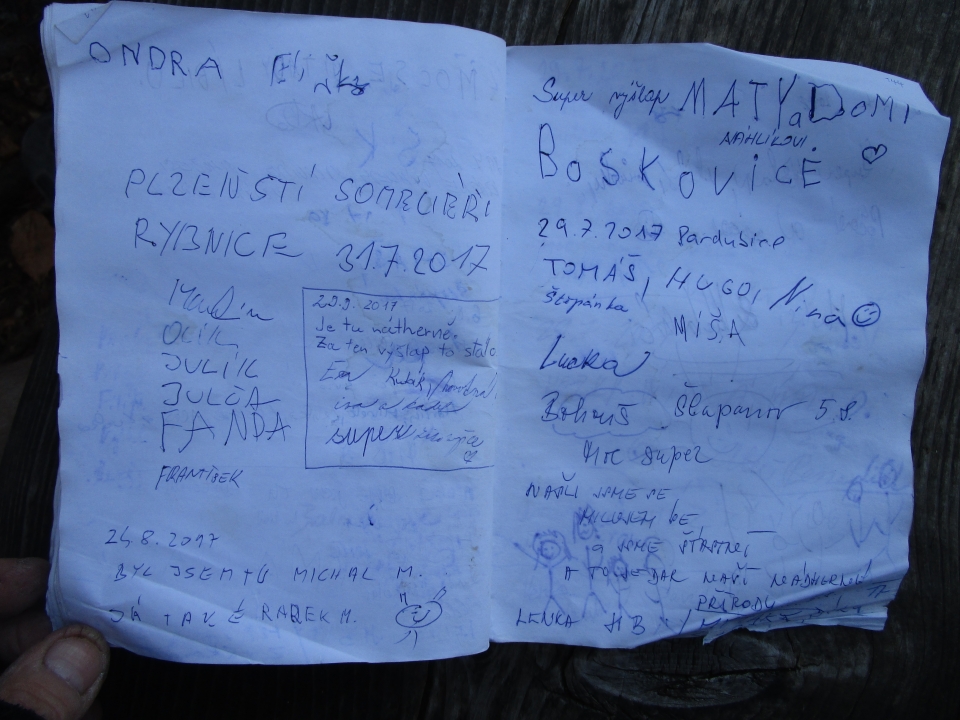 ONDRA Eliška
PLZEŇSTÍ
RYBNICE 31.7.2017
OLÍK
JULÍK
JULČA
FANDA
FRANTIŠEK
2017
Je tu nádherně.
Za ten výšlap to stálo
super
24.8.2017
BYL JSEM TU MICHAL M.
JÁ TAKÉ RADEK M.
Super výšlap MATY a DOMI
NÁHLÍKOVI
BOSKOVICE
29.7.2017 Pardubice
TOMÁŠ, HUGO, Nina
Štěpánka
MÍŠA
Lucka
Bohouš 5.8.
Moc super
NAŠLI JSME SE
MILUJEM SE
A JSME ŠŤASTNÍ
A TO JE DAR NAŠÍ NÁDHERNÉ
PŘÍRODY
LENKA HB